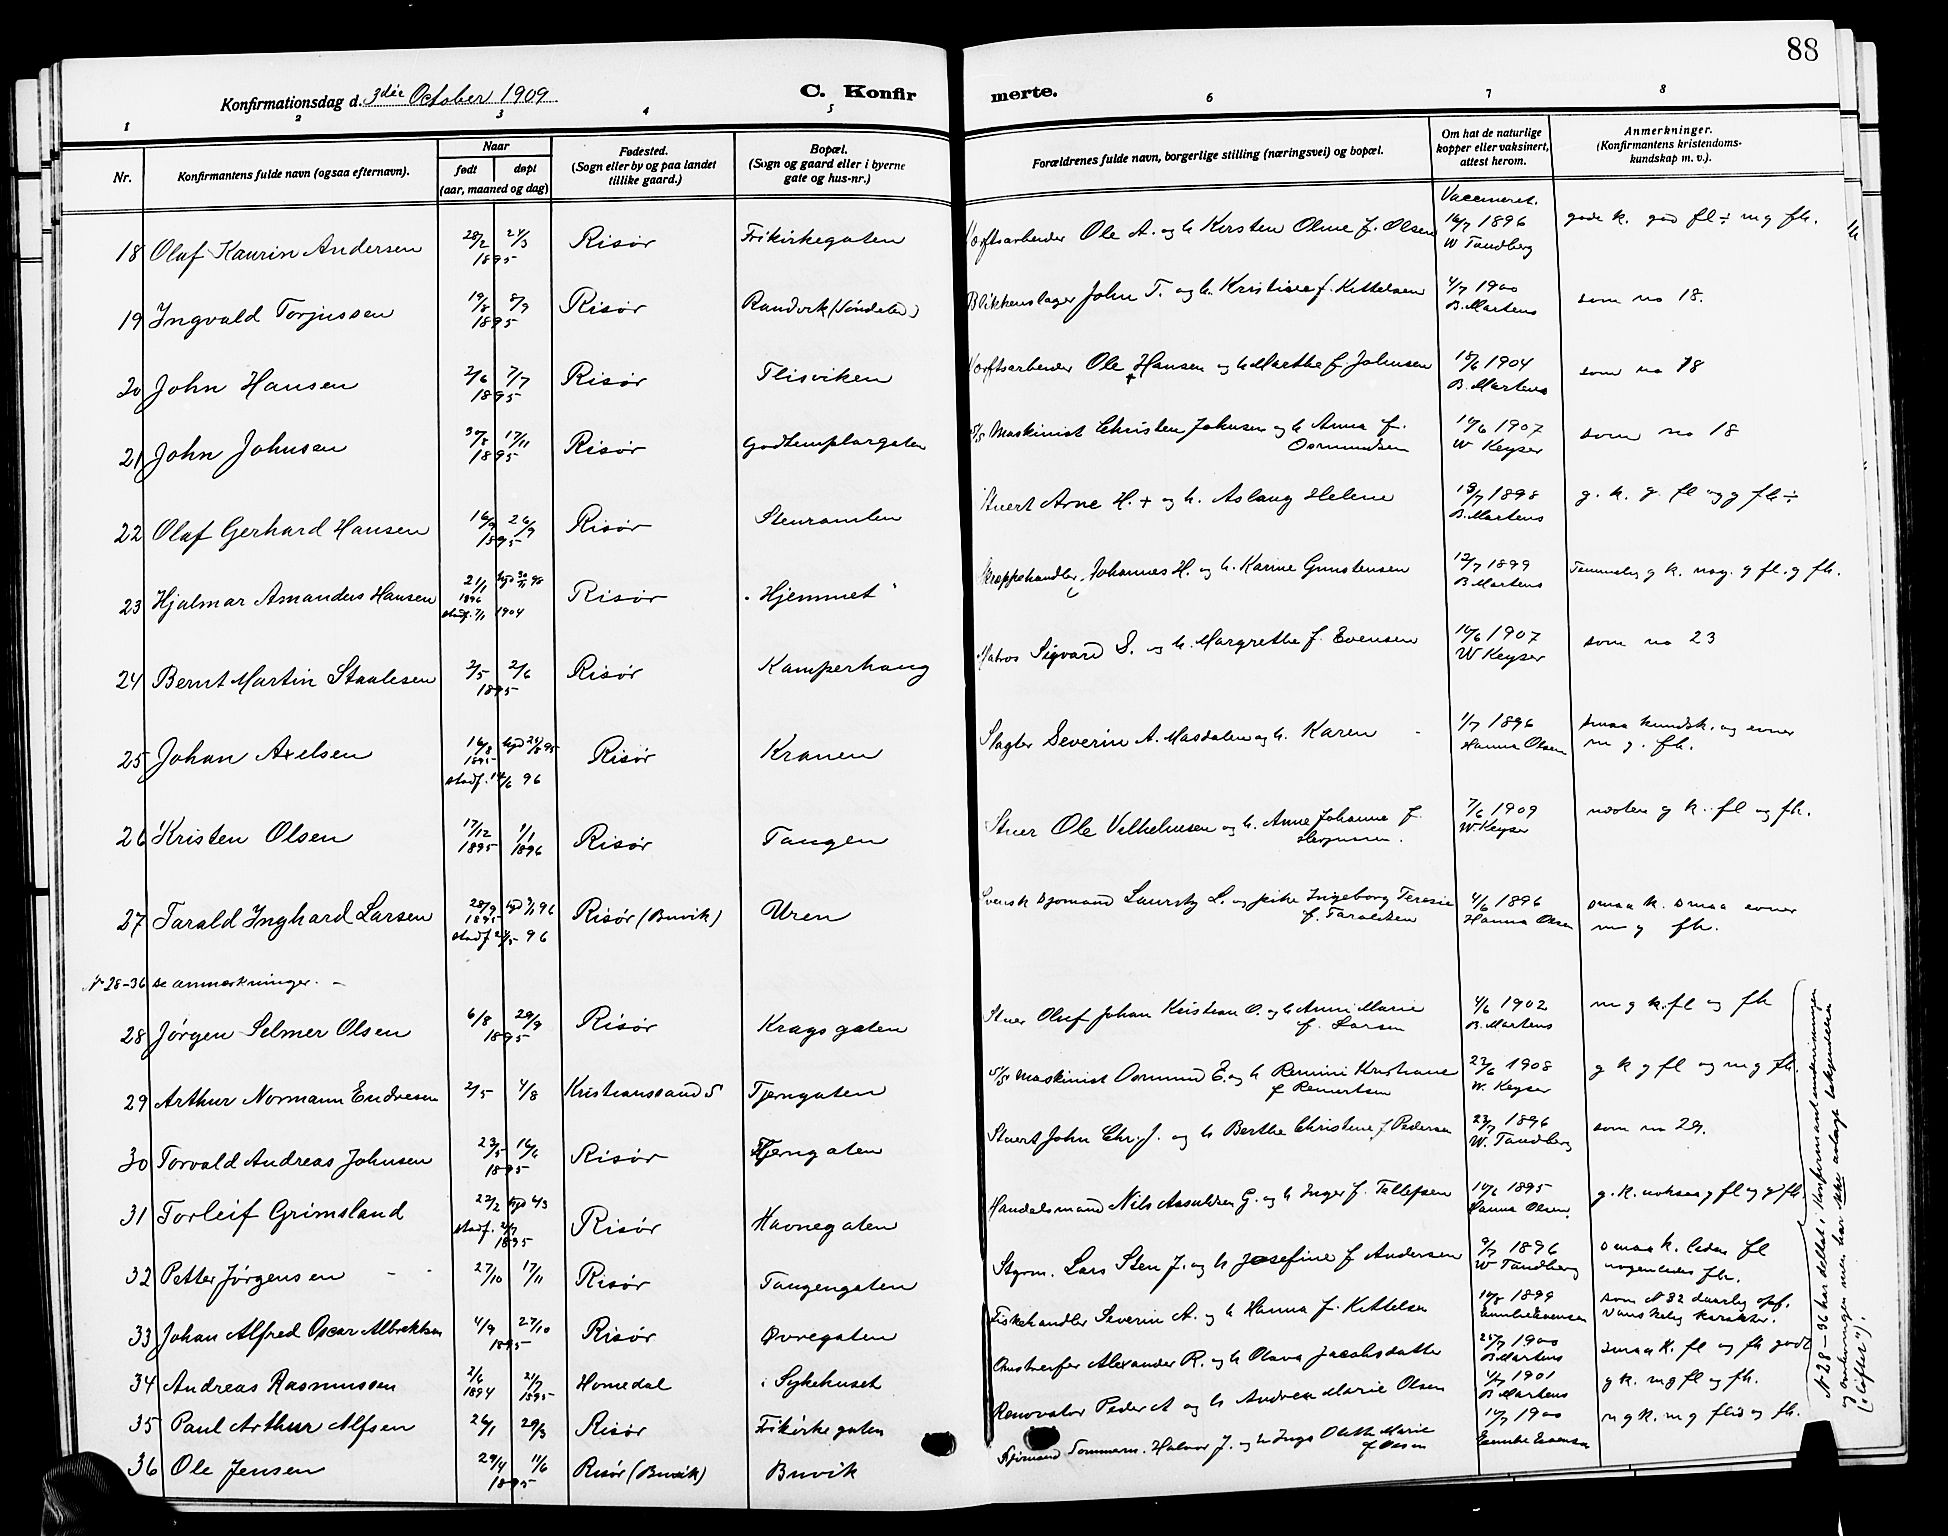 88
Konfirmationsdag d. 3die October 1909
C. Konfirmerte.
1 2 3 4 5 6 7 8
Nr. Konfirmantens fulde navn (ogsaa efternavn). Naar født døpt (aar, maaned og dag) Fødested. (Sogn eller by og paa landet tillike gaard.) Bopæl. (Sogn og gaard eller i byerne gate og hus-nr.) Forældrenes fulde navn, borgerlige stilling (næringsvei) og bopæl. Om hat de naturlige kopper eller vaksinert, attest herom. Anmerkninger. (Konfirmantens kristendomskundskap m. v.).
18 Olaf Kaurin Andersen 28/2 24/3 1895 Risør Frikirkegaten Ole A. og h. Kirsten Oline f. Olsen Vaccineret. 16/7 1896 W Tandberg gode k. god fl ÷ mg fh.
19 Ingvald Torjussen 19/8 8/9 1895 Risør Randvik (Søndeled) Blikkenslager John T. og h. Kristine f. Kittelsen 4/7 1900 B. Martens som no 18.
20 John Hansen 2/6 7/7 1895 Risør Flisviken Værftsarbeider Ole + Hansen og h Marthe f. Johnsen 18/6 1904 B. Martens som no 18
21 John Johnsen 30/8 17/11 1895 Risør Godtemplargaten Maskinist Christen Johnsen og h Anna f. Osmundsen 14/6 1907 W Keyser som no 18
22 Olaf Gerhard Hansen 16/9 26/9 1895 Risør Stenramlen Stuert Arne H. + og h. Aslaug Helene 13/7 1898 B. Martens g. k. g. fl og g fh ÷
23 Hjalmar Amandus Hansen 21/1 1896 stadf. 7/1 1904 Risør "Hjemmet" Johannes H. og h. Karine Gunstensen 12/7 1899 B Martens g k. nog. g fl. g fh.
24 Bernt Martin Staalesen 2/5 2/6 1895 Risør Kamperhaug Matros Sigvard S. og h. Margrethe f. Evensen 14/6 1907 W Keyser som no 23
25 Johan Axelsen 16/8 1895 stadf. 14/6 96 Risør Kranen Slagter Severin A. og h. Karen 1/7 1896 Hanna Olsen smaa kundsk. og evner m g. fh.
26 Kristen Olsen 17/12 1895 1/1 1896 Risør Tangen Stuer Ole Vilhelmsen og h. Anne Johanne f. 7/6 1909 W. Keyser næsten g k. fl og fh.
27 Tarald Inghard Larsen 28/9 1895 96 Risør (Buvik) Uren Svensk sjømand L. og pike Ingeborg Teresie f. Taraldsen 4/6 1896 Hanna Olsen smaa k. smaa evner m g fh.
N 28-36 se anmærkninger. -
28 Jørgen Selmer Olsen 6/8 29/9 1895 Risør Kragsgaten Stuer Oluf Johan Kristian O. og h Anne Marie f. Larsen 4/6 1902 B. Martens m g k. fl og fh
29 Arthur Normann Endresen 2/5 4/8 Kristianssand S Tjerngaten Maskinist Osmund E. og h Remine Kristiane f Reinertsen 23/6 1908 W. Keyser g k g fl og m g fh.
30 Torvald Andreas Johnsen 23/5 16/6 1895 Risør Tjerngaten Stuert John Chr. J. og h Berthe Christine f Pedersen 23/7 1896 W. Tandberg som no 29.
31 Torleif Grimsland 22/2 4/3 stadf. 1895 Risør Havnegaten Handelsmand Nils G. og h Inger f. Tallefsen 14/6 1895 Hanna Olsen g. k. g fl og g fh.
32 Petter Jørgensen 27/10 17/11 Risør Tangengaten Styrm. Lars Sten J. og h Josefine f Andersen 9/7 1896 W Tandberg smaa k. fl nogenledes fh.
33 Johan Alfred Oscar Albrektsen 4/9 27/10 1895 Risør Øvregaten Fiskehandler Severin A. og h Hanna f. Kittelsen 1899 som N 32 daarlig opf. vanskelig karakter.
34 Andreas Rasmussen 2/6 1894 2/7 1895 Homedal i Sykehuset Alexander R. og h Olava Jacobsdatter 1900 B Martens smaa k. fl og fh godt
35 Paul Arthur Alfsen 26/1 29/3 Risør Frikirkegaten Renovatør Peder A og h Andrea Marie Olsen 4/7 1901 B Martens g k. mg fl og fh.
36 Ole Jensen 29/4 11/6 1895 Risør (Buvik) Buvik Sjømand Halvor J. og h Inga Olette Marie f Olsen 14/7 1900 m g k. m g flid og fh.
N 28-36 har deltat i konfirmantundervisningen
og overhøringen men har ikke avlagt bekjendelsen
(: løfter").